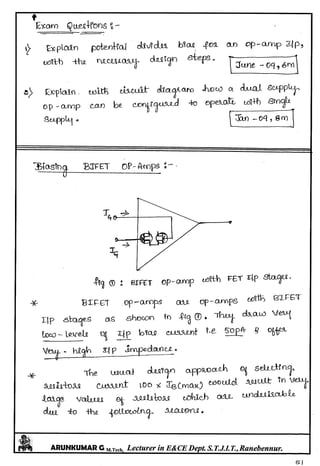 Exam Questions :-
1) Explain potential divider bias for an op-amp I/p,
with the necessary design steps.
June - 09, 6m
2) Explain with circuit diagram how a dual supply
op-amp can be configured to operate with single
supply.
Jan - 09, 8m
Biasing BIFET OP-Amps :-
fig ① : BIFET op-amp with FET I/p stages.
* BIFET op-amps are op-amps with BIFET
I/p stages as shown in fig ①. They draw very
low-levels of I/p bias current i.e 50pA & offer
very-high I/p impedance.
* The usual design approach of selecting
resistors current 100 x IB(max) would result in very
large values of resistors which are undesirable
due to the following reasons.
ARUNKUMAR G M.Tech, Lecturer in E&CE Dept. S.T.J.I.T., Ranebennur.